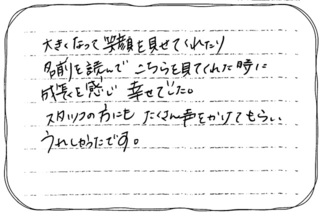 大きくなって笑顔を見せてくれたり
名前を読んで こちらを見てくれた時に
成長を感じ 幸せでした。
スタッフの方にも たくさん声をかけてもらい
うれしかったです。